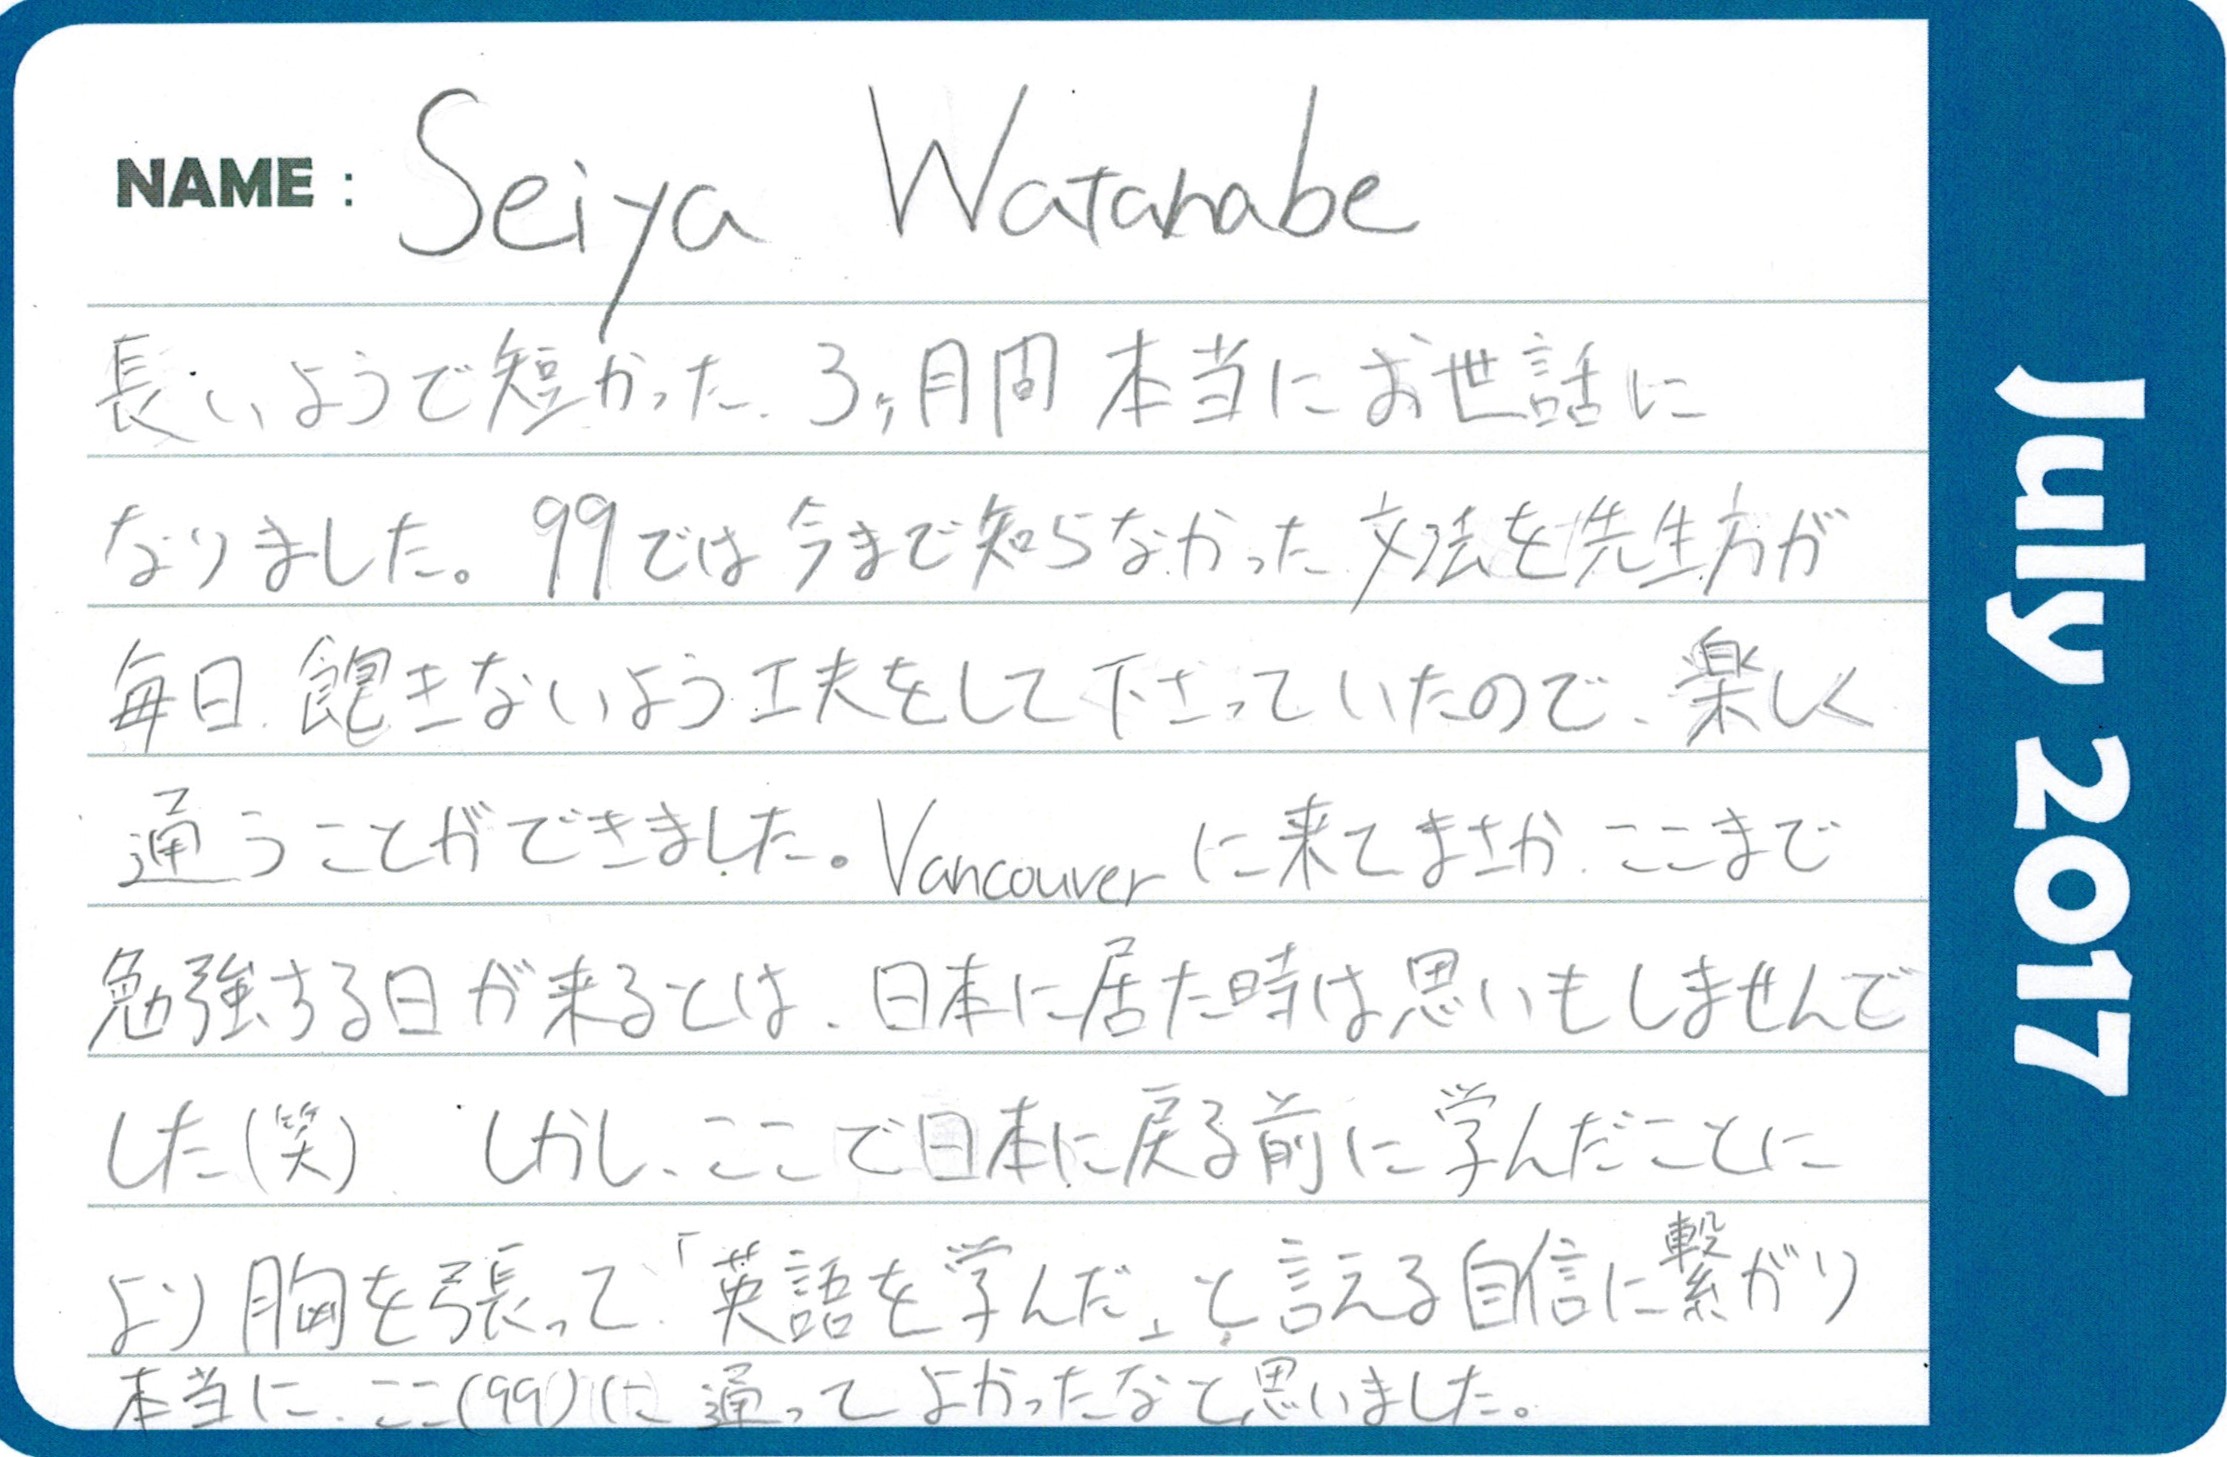 NAME : Seiya Watanabe
長いようで短かった 3ヶ月間 本当にお世話に
なりました。99では今まで知らなかった文法を先生方が
毎日 飽きないよう工夫をして下さっていたので、楽しく
通うことができました。Vancouverに来てまさか ここまで
勉強する日が来るとは、日本に居た時は思いもしませんで
した(笑) しかし、ここで日本に戻る前に学んだことに
より胸を張って「英語を学んだ」と言える自信に繋がり
本当に、ここ(99)に通ってよかったなと思いました。
July 2017